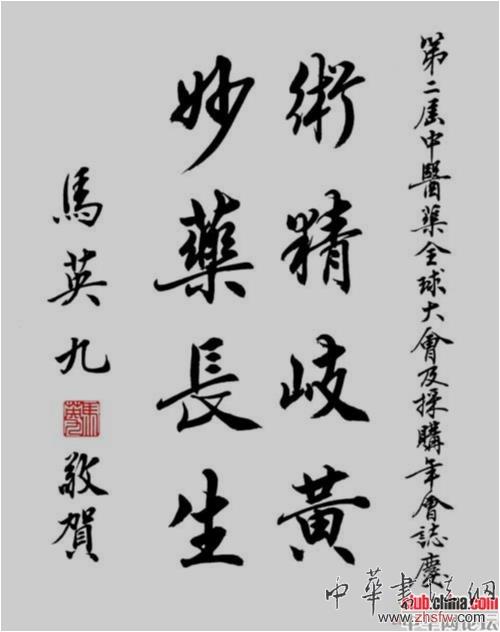 第二屆中醫藥全球大會及採購年會誌慶
術精岐黃
妙藥長生
馬英九
敬賀
中華書法網
club.china.com
www.zhsfw.com
中华网论坛